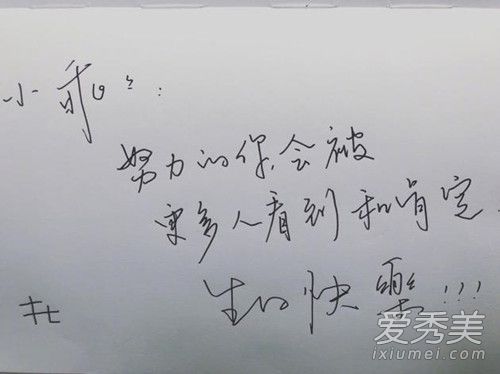 小乖:
努力的你,会被
更多人看到和肯定.
生日快樂!!!
爱秀美
ixiumei.com